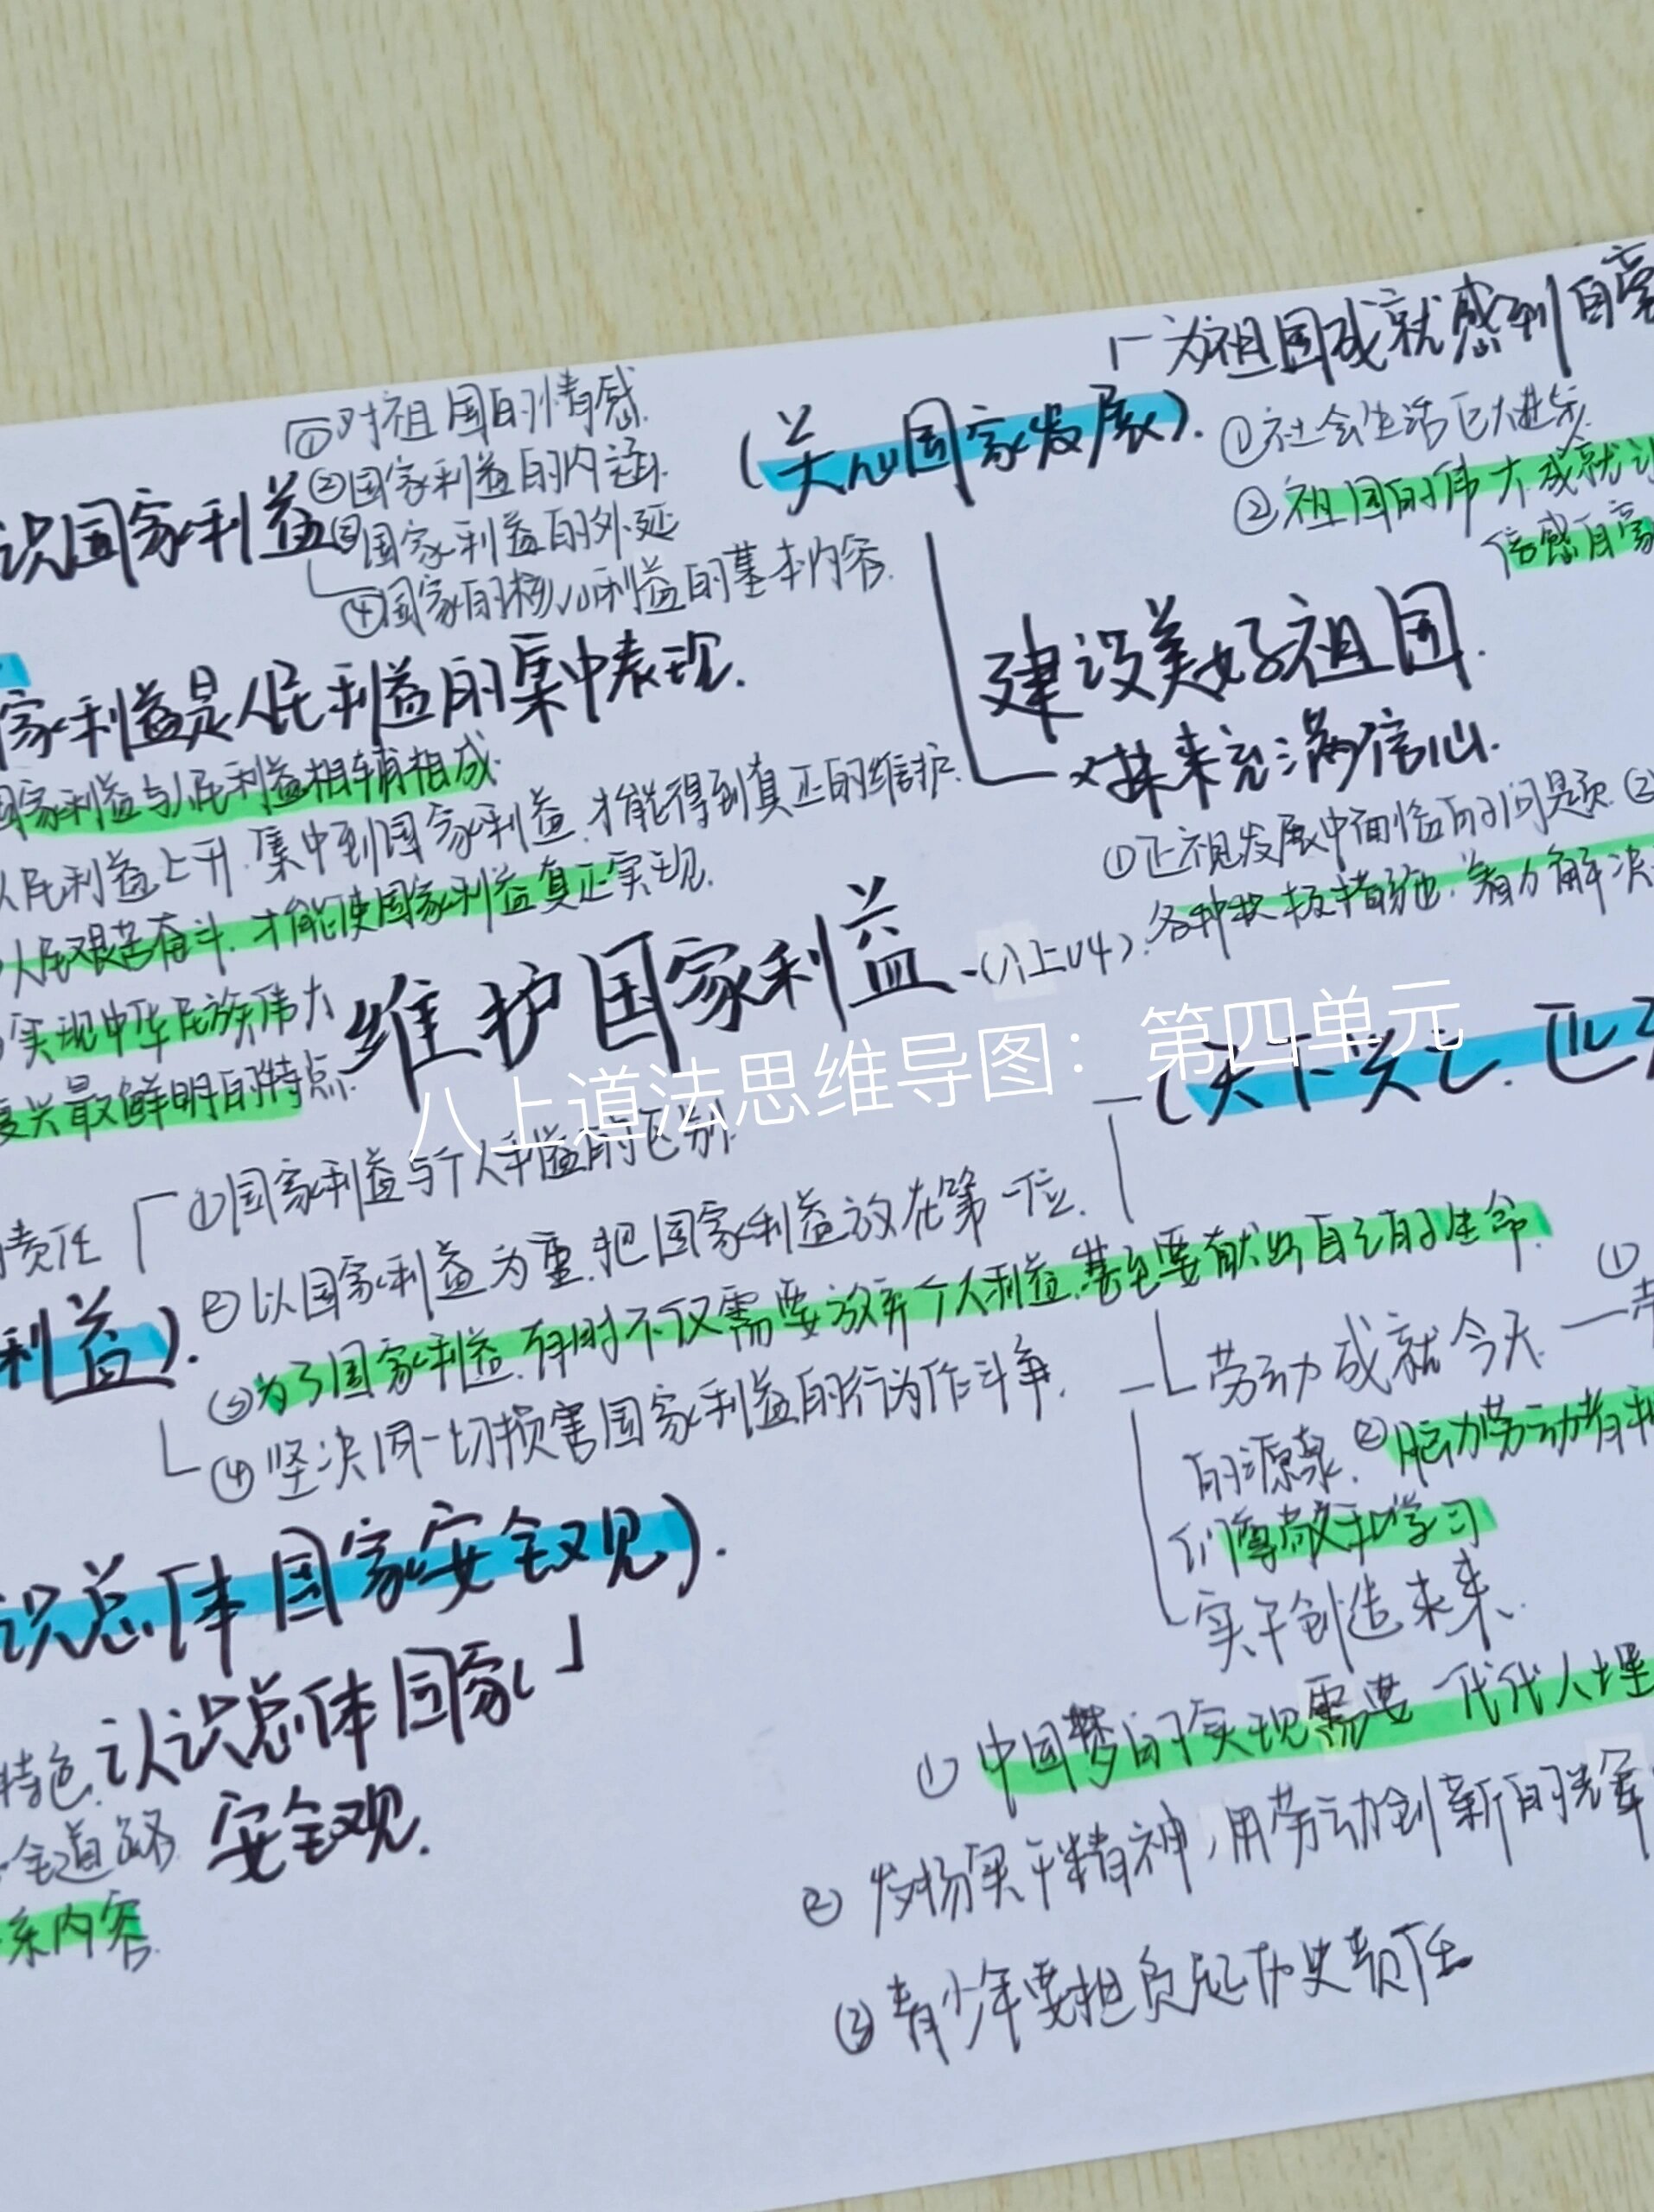 ①对祖国的情感
②国家利益的内涵.
识国家利益
③国家利益的外延
④国家的核心利益的基本内容.
家利益是人民利益的集中表现.
国家利益与人民利益相辅相成.
人民利益上升.集中到国家利益.才能得到真正的维护.
人民艰苦奋斗.才能使国家利益真正实现.
实现中华民族伟大
复兴最鲜明的特点.
维护国家利益.(八上U4).
八上道法思维导图：第四单元
(关心国家发展).
为祖国成就感到自豪
①社会生活巨大进步.
②祖国的伟大成就让
倍感自豪
建设美好祖国.
对未来充满信心.
①正视发展中面临的问题.②
各种积极措施.着力解决
责任
①国家利益与个人利益的区别.
②以国家利益为重.把国家利益放在第一位.
利益).
③为了国家利益.有时不仅需要放弃个人利益.甚至要献出自己的生命.
④坚决同一切损害国家利益的行为作斗争.
识总体国家安全观).
认识总体国家
安全观.
特色.
全道路.
系内容.
(天下兴亡.匹
劳动成就今天
①
的源泉.②脑力劳动者
们尊敬和学习
实干创造未来.
①中国梦的实现需要一代代人
②发扬实干精神,用劳动创新的
③青少年要担负起历史责任